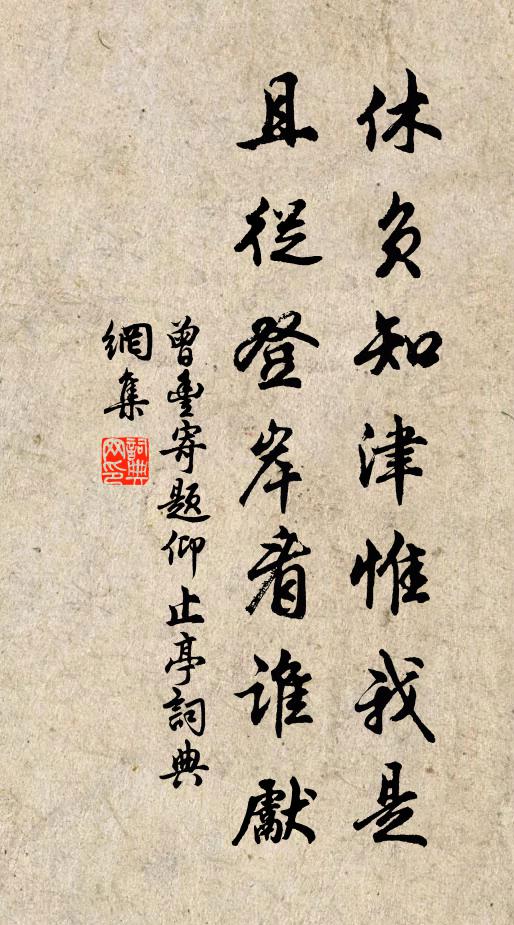 休負知津惟我是
且從登岸看誰獻
曾豐寄題仰止亭詞典
網集
詞典
网印